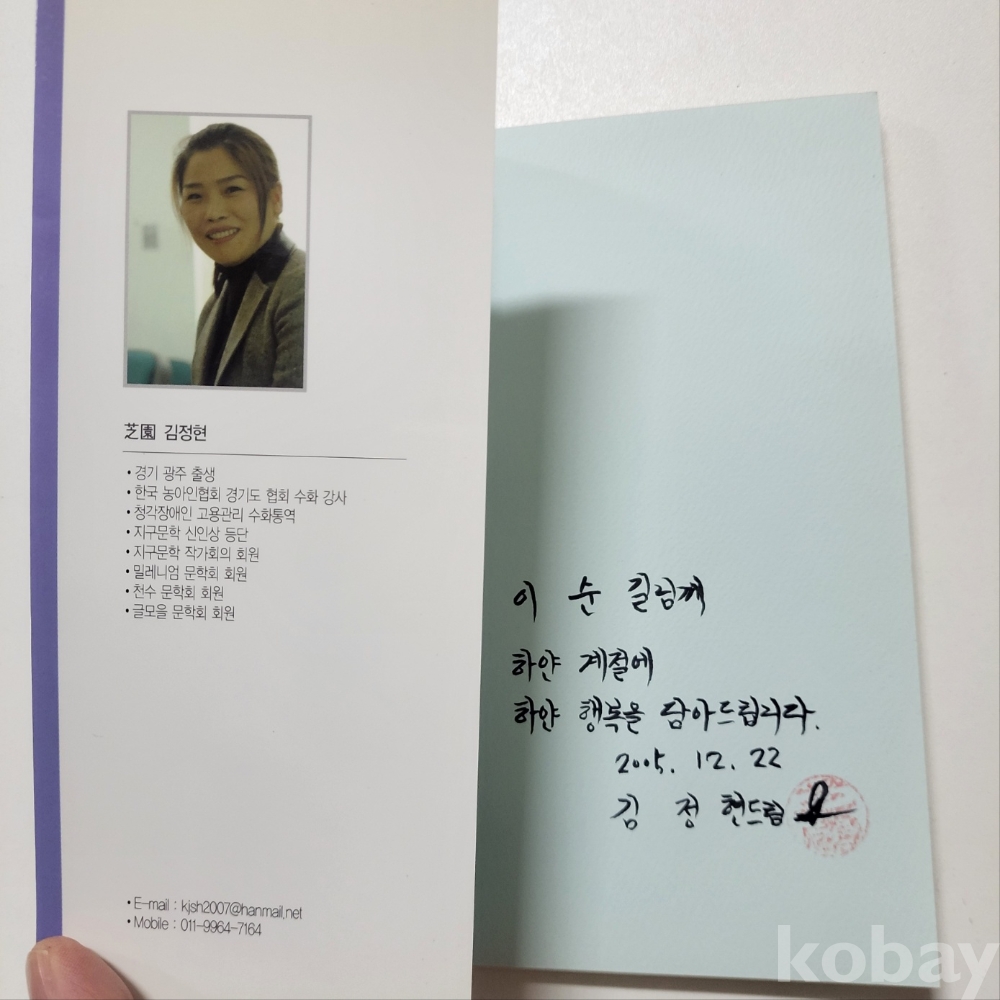 芝園 김정현
• 경기 광주 출생
• 한국 농아인협회 경기도 협회 수화 강사
• 청각장애인 고용관리 수화통역
• 지구문학 신인상 등단
• 지구문학 작가회의 회원
• 밀레니엄 문학회 회원
• 천수 문학회 회원
• 글모을 문학회 회원
• E-mail : kjsh2007@hanmail.net
• Mobile : 011-9964-7164
이 순 길님께
하얀 계절에
하얀 행복을 담아드립니다.
2005. 12. 22
김 정 현드림
kobay